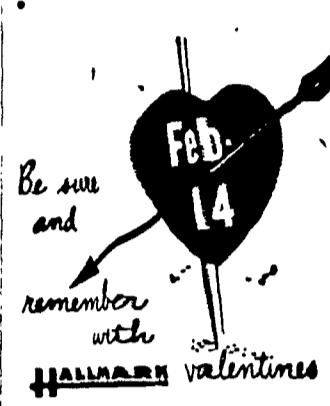 Feb.
14
Be sure
and
remember
with
HALLMARK valentines